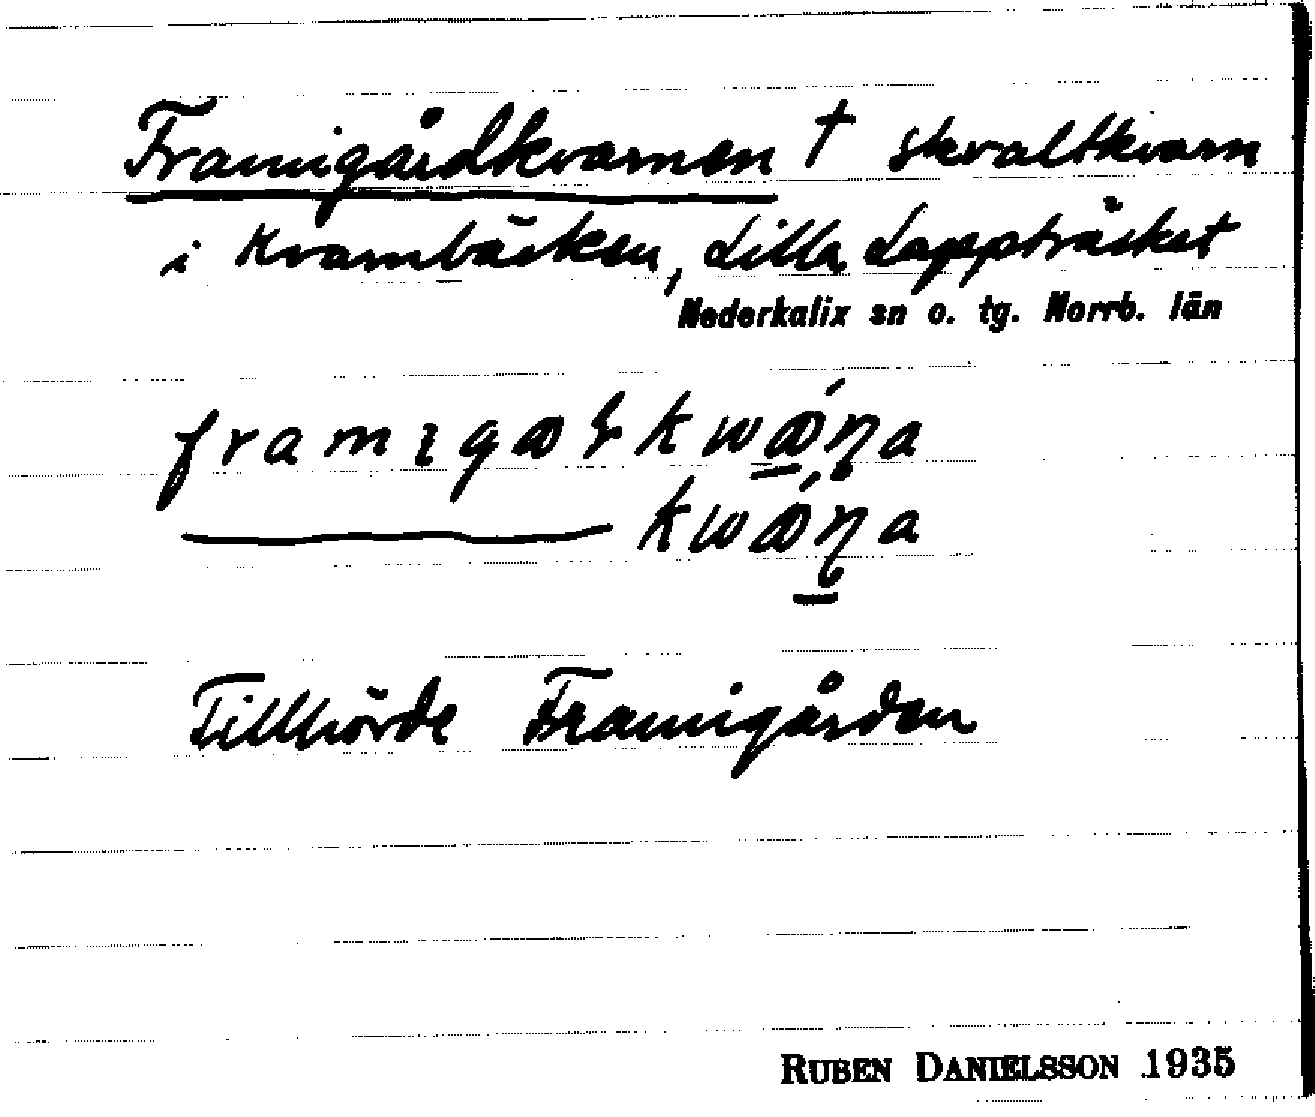 Framigårdkvarnen † skvaltkvarn
i Kvarnbäcken, Lilla Lappträsket
Nederkalix sn o. tg. Norrb. län
kwǿɳa
Tillhörde Framigården
RUBEN DANIELSSON 1935